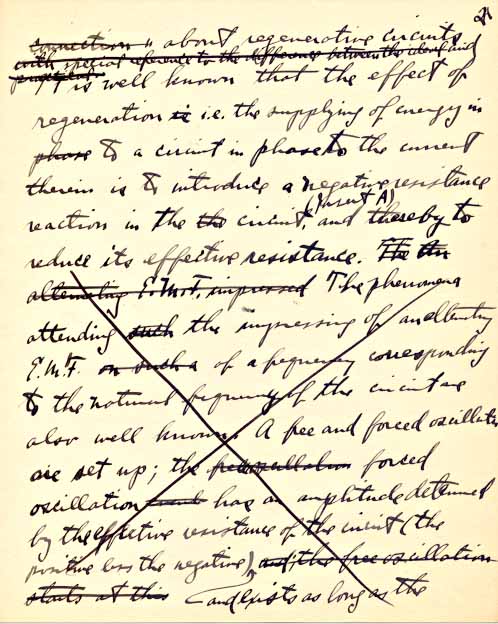 2
connection" about regenerative circuits
with special reference to the difference between the ideal and
practical.
It is well known that the effect of
regeneration is i.e. the supplying of energy in
phase to a circuit in phase to the current
therein is to introduce a negative resistance
(Insert A)
reaction in the the circuit, and thereby to
reduce its effective resistance. The the
alternating E.M.F. impressed The phenomena
attending such the impressing of an alternating
E.M.F. on such a of a frequency corresponding
to the natural frequency of the circuit are
also well known. A free and forced oscillation
are set up; the free oscillation forced
oscillation has an amplitude determined
by the effective resistance of the circuit (the
positive less the negative) and the free oscillation
starts at this and exists as long as the